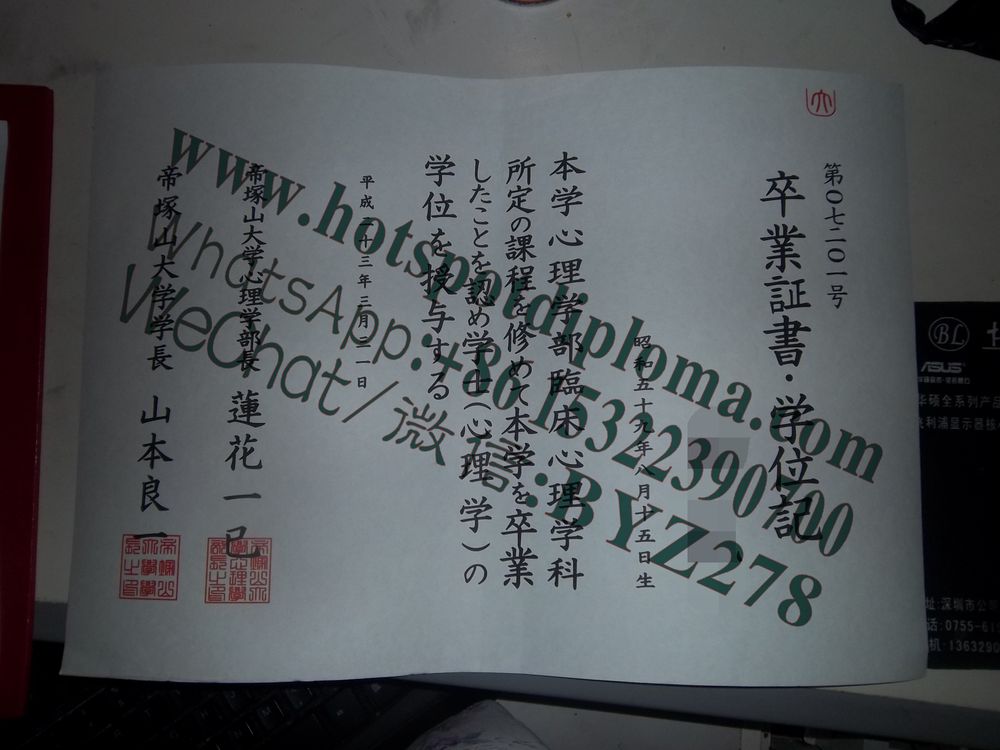 第〇七二〇一号
卒業証書・学位記
昭和五十九年八月十五日生
本学心理学部臨床心理学科
所定の課程を修めて本学を卒業
したことを認め学士(心理学)の
学位を授与する
平成二十三年三月二一日
帝塚山大学心理学部長 蓮花一己
帝塚山大学学長 山本良一
www.hotspotdiploma.com
WhatsApp:+86 15322390700
WeChat/微信:BYZ278
BL
ASUS
华硕全系列产品
飞利浦显示器
址:深圳市
话:0755-61
机:1363290